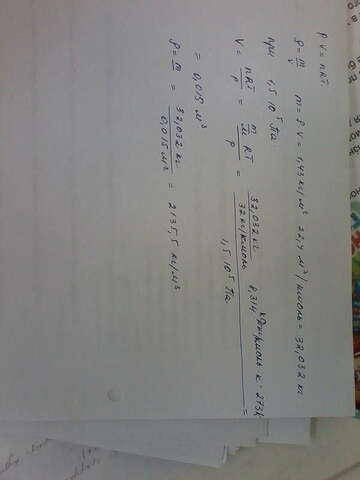 P V = nRT.
ρ = m/V   m = ρ·V = 1,43 кг/м³ · 22,4 м³/кмоль = 32,032 кг
при 1,5·10⁵ Па
V = nRT/P = (m/M RT)/P = (32,032 кг / 32 кг/кмоль · 8,314 кДж/кмоль·к · 273К) / 1,5·10⁵ Па =
= 0,015 м³
ρ = m/V = 32,032 кг / 0,015 м³ = 2135,5 кг/м³